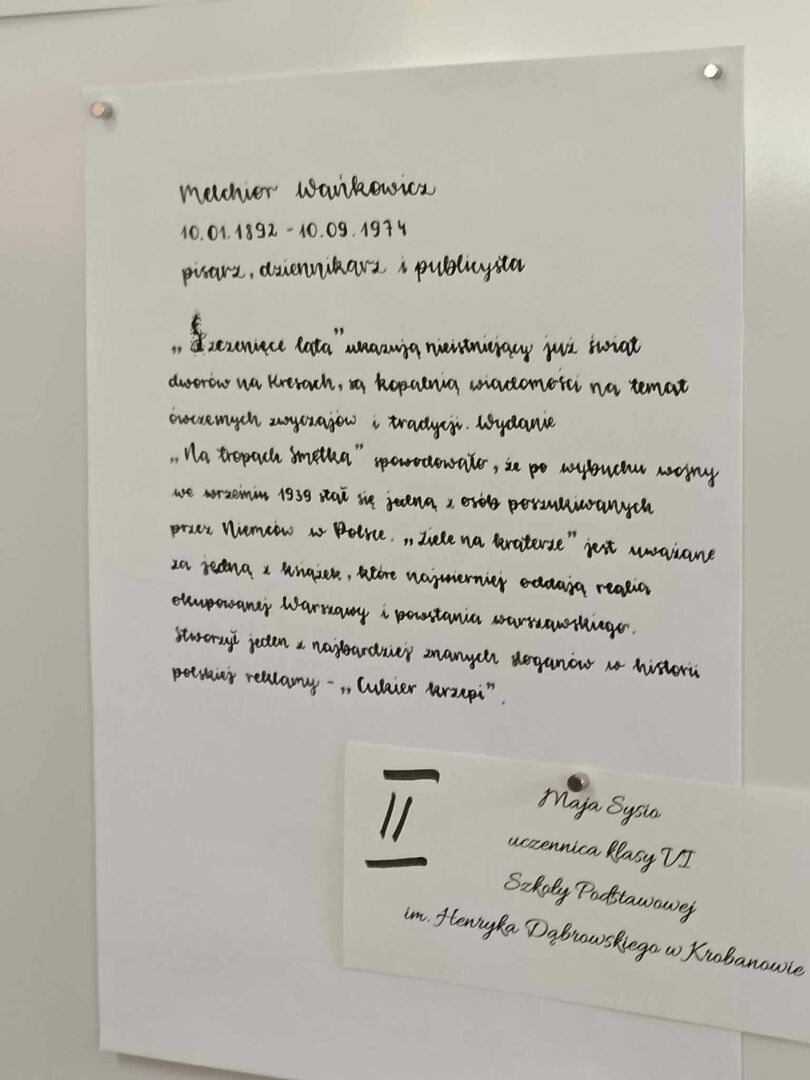 Melchior Wańkowicz
10.01.1892 - 10.09.1974
pisarz, dziennikarz i publicysta
„Szczenięce lata” ukazują nieistniejący już świat
dworów na Kresach, są kopalnią wiadomości na temat
ówczesnych zwyczajów i tradycji. Wydanie
„Na tropach Smętka” spowodowało, że po wybuchu wojny
we wrześniu 1939 stał się jedną z osób poszukiwanych
przez Niemców w Polsce. „Ziele na kraterze” jest uważane
za jedną z książek, które najwierniej oddają realia
okupowanej Warszawy i powstania warszawskiego.
Stworzył jeden z najbardziej znanych sloganów w historii
polskiej reklamy - „Cukier krzepi”.
II
Maja Sysio
uczennica klasy VI
Szkoły Podstawowej
im. Henryka Dąbrowskiego w Krobanowie